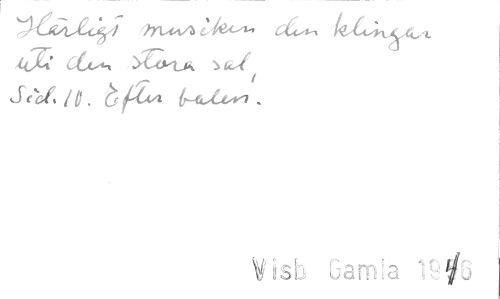 Härligt musiken den klingar
uti den stora sal,
Sid. 10. Efter balen.
Visb Gamla 1946